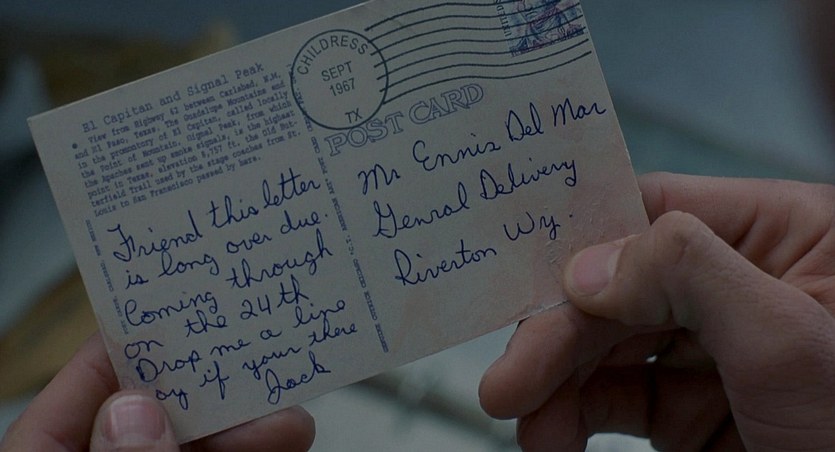 El Capitan and Signal Peak
View from Highway 62 between Carlsbad, N.M.
and El Paso, Texas, the Guadalupe Mountains and
in the promontory of El Capitan, called locally
the Point of Mountain. Signal Peak, from which
the Apaches sent up smoke signals, is the highest
point in Texas, elevation 8,757 ft. the Old But-
terfield Trail used by the stage coaches from St.
Louis to San Francisco passed by here.
Friend this letter
is long over due.
Coming through
on the 24th
Drop me a line
ay if your there
Jack
CHILDRESS
SEPT
1967
TX
POST CARD
Mr Ennis Del Mar
Genral Delivery
Riverton Wy.